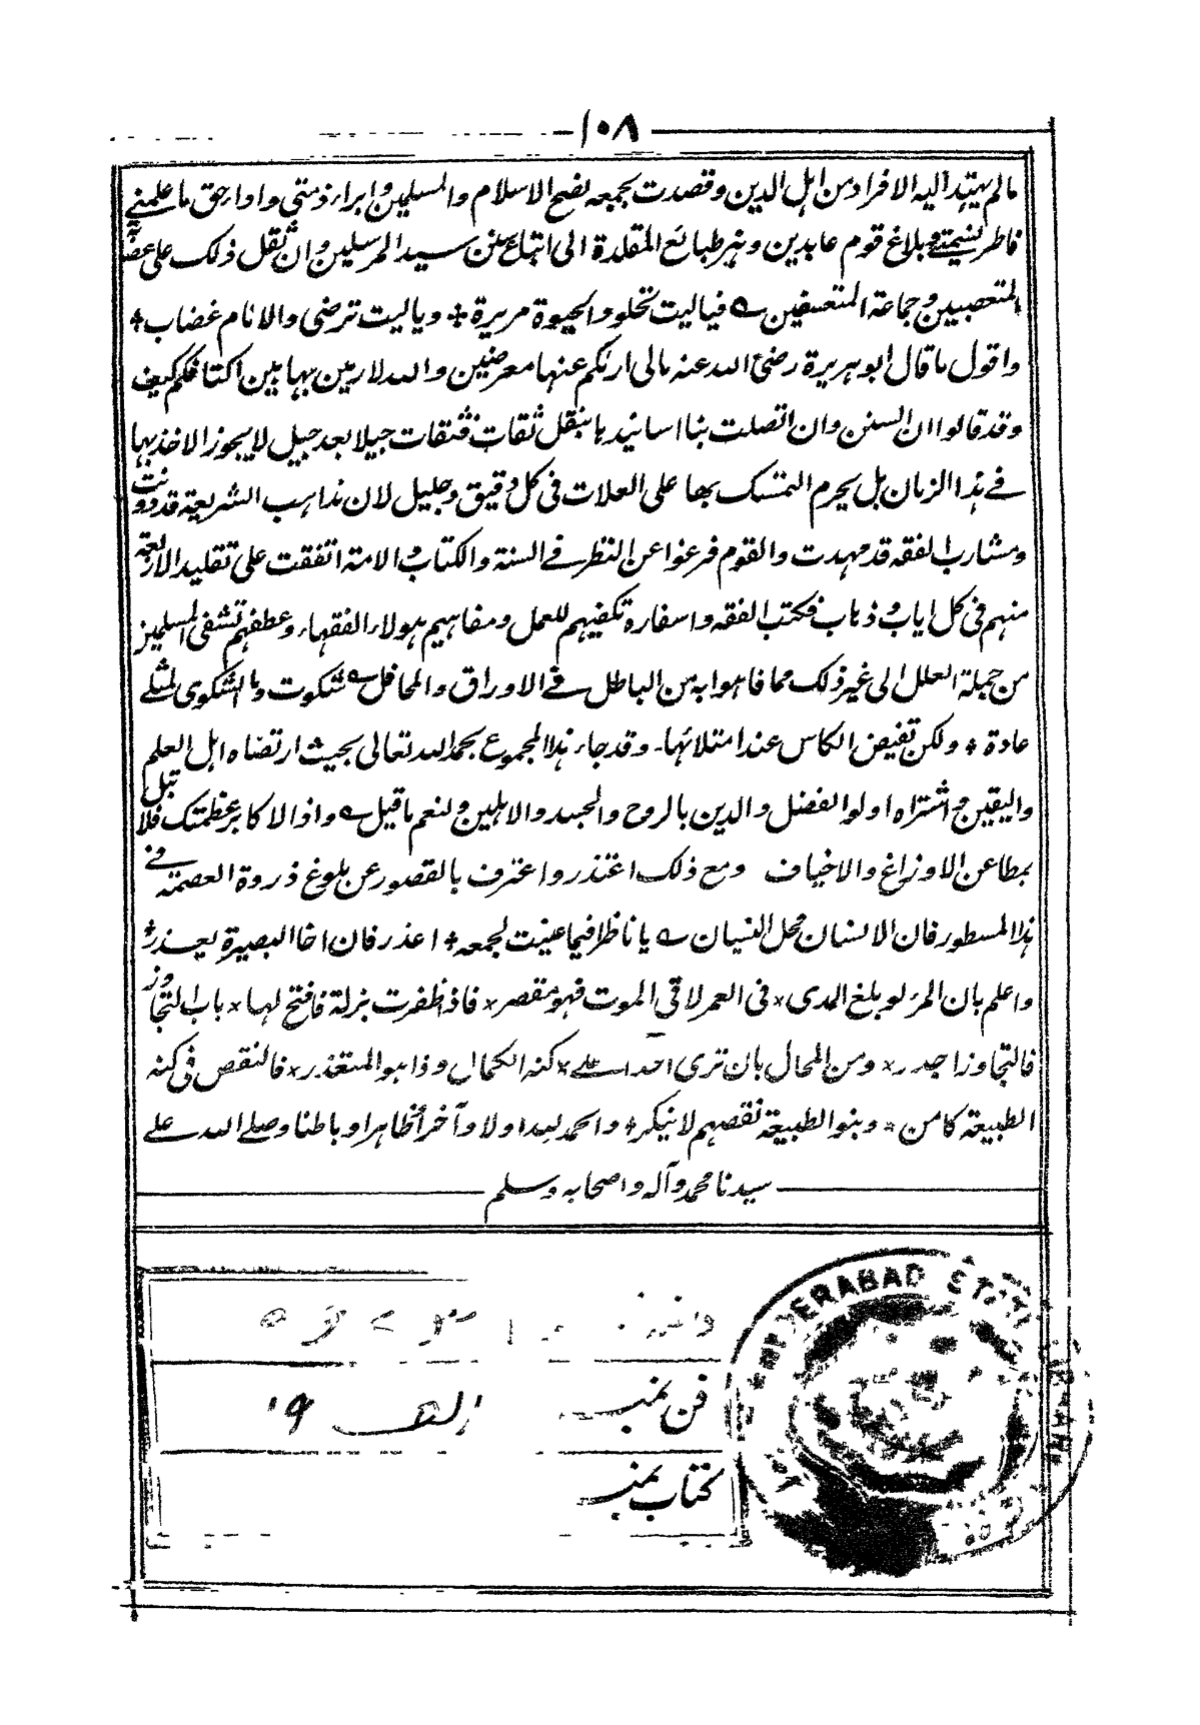 ١٠٨
مالم يهتد اليه الا فراد من اهل الدين وقصدت بجمعه نصح الاسلام والمسلمين وابراء ذمتى واداء حق ما علمنى
فاطر وبلاغ قوم عابدين وبنز طبائع المقلدة الى اتباع سنن سيد المرسلين وان ثقل ذلك على
المتعصبين وجماعة المتعسفين ے فياليت تحلو والحيوة مريرة ✢ وياليت ترضى والانام غضاب ✢
واقول ما قال ابو هريرة رضى الله عنه مالى اراكم عنها معرضين والله لارمين بها بين اكتافكم كيف
وقد قالوا ان السنن وان اتصلت بنا اسانيدها بنقل ثقات فثقات جيلا بعد جيل لا يجوز الاخذ بها
فى هذا الزمان بل يحرم التمسك بها على العلات فى كل دقيق وجليل لان مذاهب الشريعة قد دونت
ومشارب الفقه قد مهدت والقوم فرغوا عن النظر فى السنة والكتاب والامة اتفقت على تقليد الاربعة
منهم فى كل اياب وذهاب فكتب الفقه واسفاره تكفيهم للعمل ومفاهيم هولاء الفقهاء وعطفهم تشفى المسلمين
من جملة العلل الى غير ذلك مما فاهوا به من الباطل فى الاوراق والمحافل ے شكوت وما الشكوى لمثلى
عادة ✢ ولكن تفيض الكاس عند امتلائها۔ وقد جاء هذا المجموع بحمد الله تعالى بحيث ارتضاه اهل العلم
واليقين واشتراه اولوا الفضل والدين بالروح والجسد والاهلين ولنعم ما قيل ے واذا الاكابر عظمتك فلا تبل
بمطاعن الاوزاغ والاخياف ومع ذلك اعتذر واعترف بالقصور عن بلوغ ذروة العصمة فى
هذا المسطور فان الانسان محل النسيان ے يا ناظرا فيما عنيت لجمعه ✢ اعذر فان اخا البصيرة يعذر ✢
واعلم بان المرء لو بلغ المدى × فى العمر لاقى الموت فهو مقصر × فاذا ظفرت بزلة فافتح لها × باب التجاوز
فالتجاوز اجدر × ومن المحال بان ترى احدا على × كنه الكمال وذا هو المتعذر × فالنقص فى كنه
الطبيعة كامن × وبنو الطبيعة نقصهم لا ينكر ✢ والحمد لله اولا وآخرا ظاهرا وباطنا وصلے الله علے
سيدنا محمد وآله واصحابه وسلم
HYDERABAD STATE
فن نمبر الف ١٩
كتاب نمبر